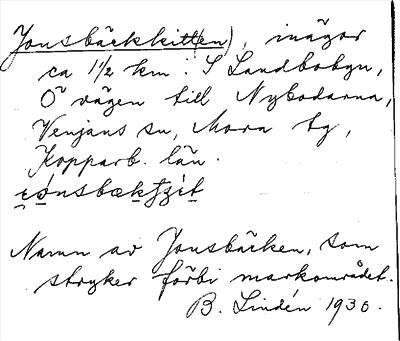 Jonsbäckkitt(en), inägor
ca 1½ km. S Landbobyn,
Ö vägen till Nybodarna,
Venjans sn, Mora tg,
Kopparb. län.
Namn av Jonsbäcken, som
stryker förbi markområdet.
B. Lindén 1930.